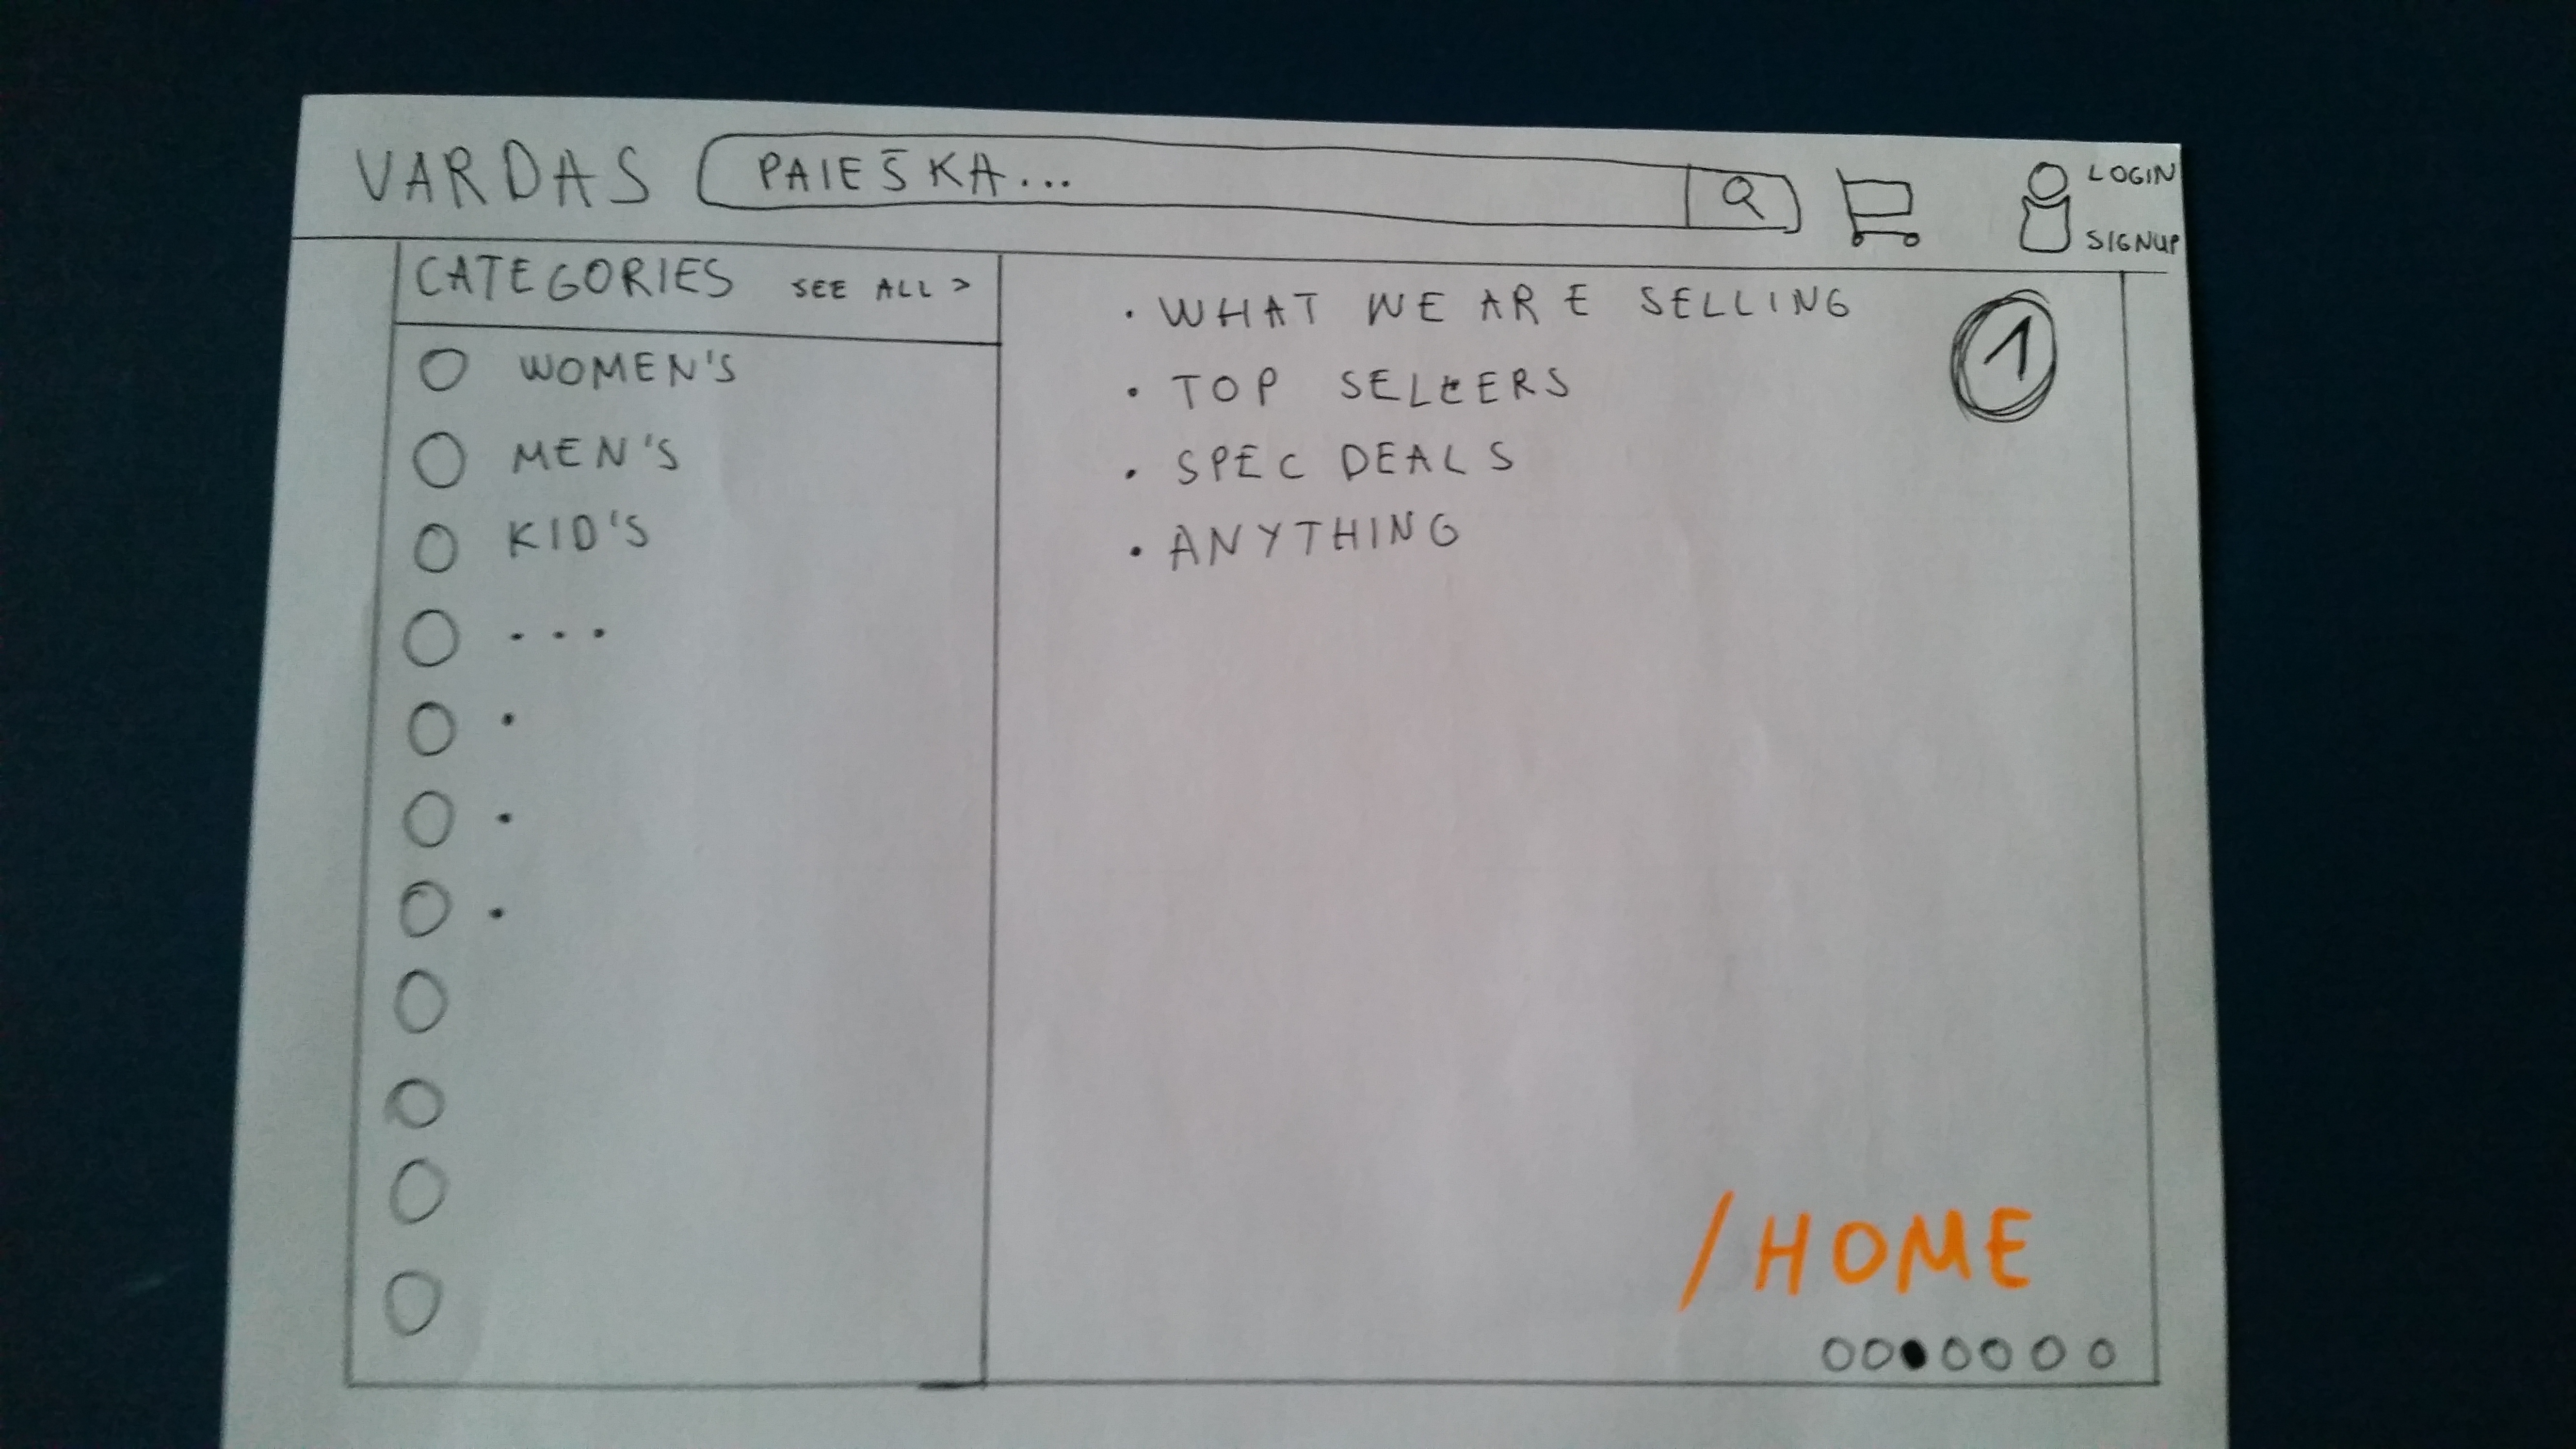 VARDAS PAIEŠKA... LOGIN
SIGNUP
CATEGORIES SEE ALL >
WOMEN'S
MEN'S
KID'S
...
.
.
.
• WHAT WE ARE SELLING
• TOP SELLERS
• SPEC DEALS
• ANYTHING
1
/HOME